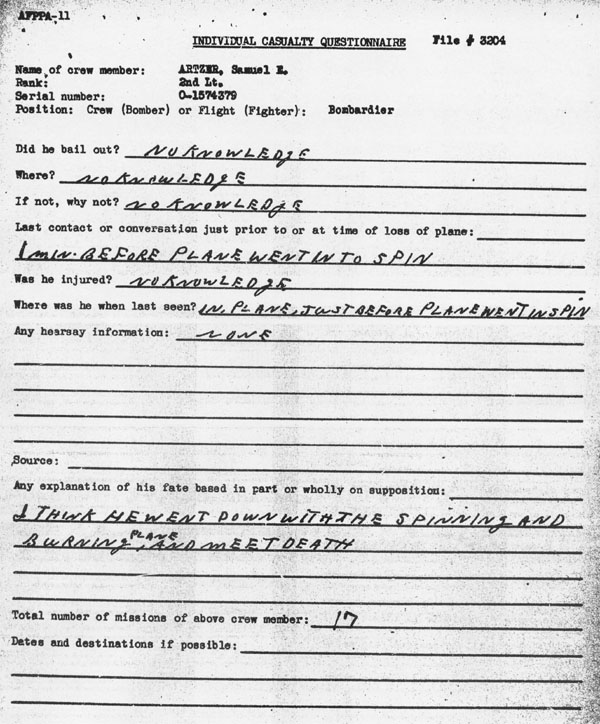 AFPPA-11
INDIVIDUAL CASUALTY QUESTIONNAIRE File # 3204
Name of crew member: ARTZER, Samuel E.
Rank: 2nd Lt.
Serial number: O-1574379
Position: Crew (Bomber) or Flight (Fighter): Bombardier
Did he bail out? NO KNOWLEDGE
Where? NO KNOWLEDGE
If not, why not? NO KNOWLEDGE
Last contact or conversation just prior to or at time of loss of plane:
1 MIN. BEFORE PLANE WENT INTO SPIN
Was he injured? NO KNOWLEDGE
Where was he when last seen? IN PLANE, JUST BEFORE PLANE WENT IN SPIN
Any hearsay information: NONE
Source:
Any explanation of his fate based in part or wholly on supposition:
I THINK HE WENT DOWN WITH THE SPINNING AND
BURNING PLANE, AND MEET DEATH
Total number of missions of above crew member: 17
Dates and destinations if possible: